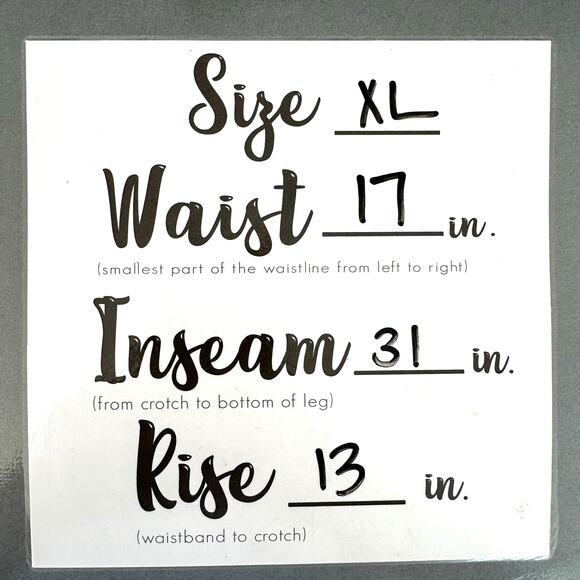 Size XL
Waist 17 in.
(smallest part of the waistline from left to right)
Inseam 31 in.
(from crotch to bottom of leg)
Rise 13 in.
(waistband to crotch)